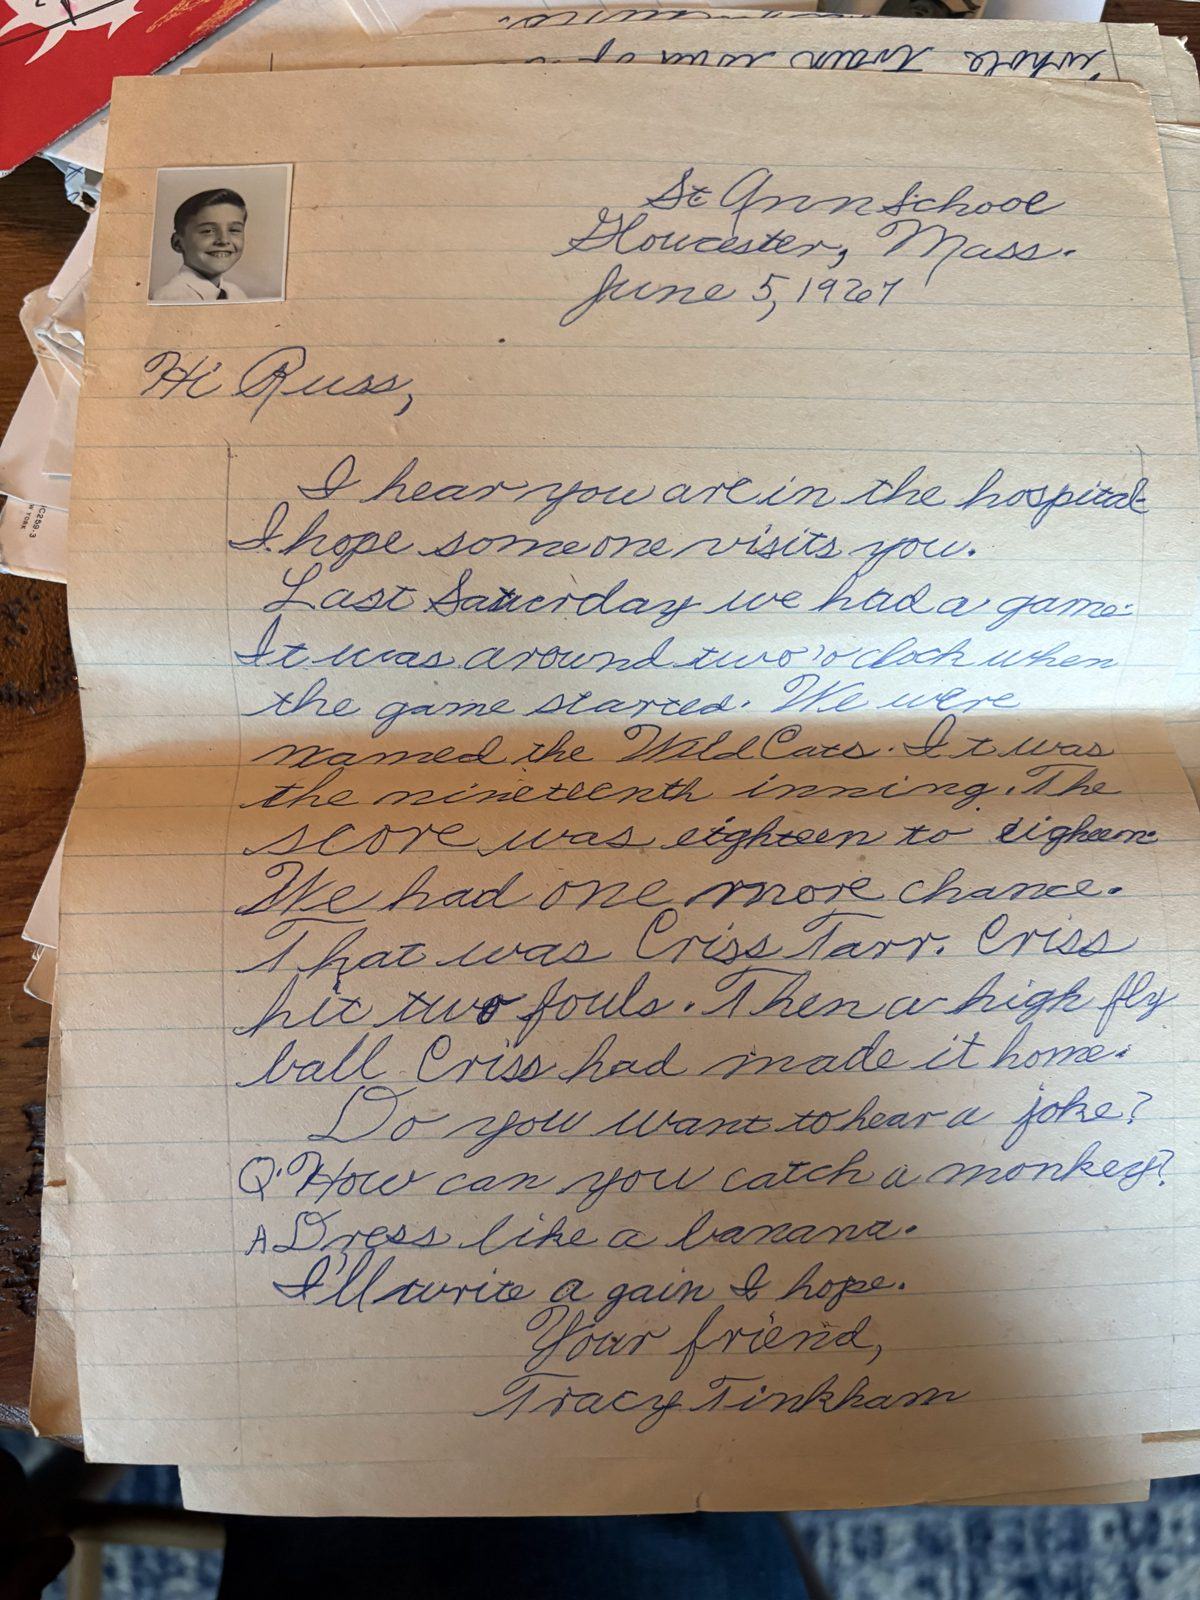 whole train load of
St Ann School
Gloucester, Mass.
June 5, 1967
Hi Russ,
I hear you are in the hospital.
I hope someone visits you.
Last Saturday we had a game.
It was around two 'o clock when
the game started. We were
named the Wild Cats. It was
the nineteenth inning. The
score was eighteen to eigheen.
We had one more chance.
That was Criss Tarr. Criss
hit two fouls. Then a high fly
ball Criss had made it home.
Do you want to hear a joke?
Q. How can you catch a monkey?
A Dress like a banana.
I'll write a gain I hope.
Your friend,
Tracy Tinkham